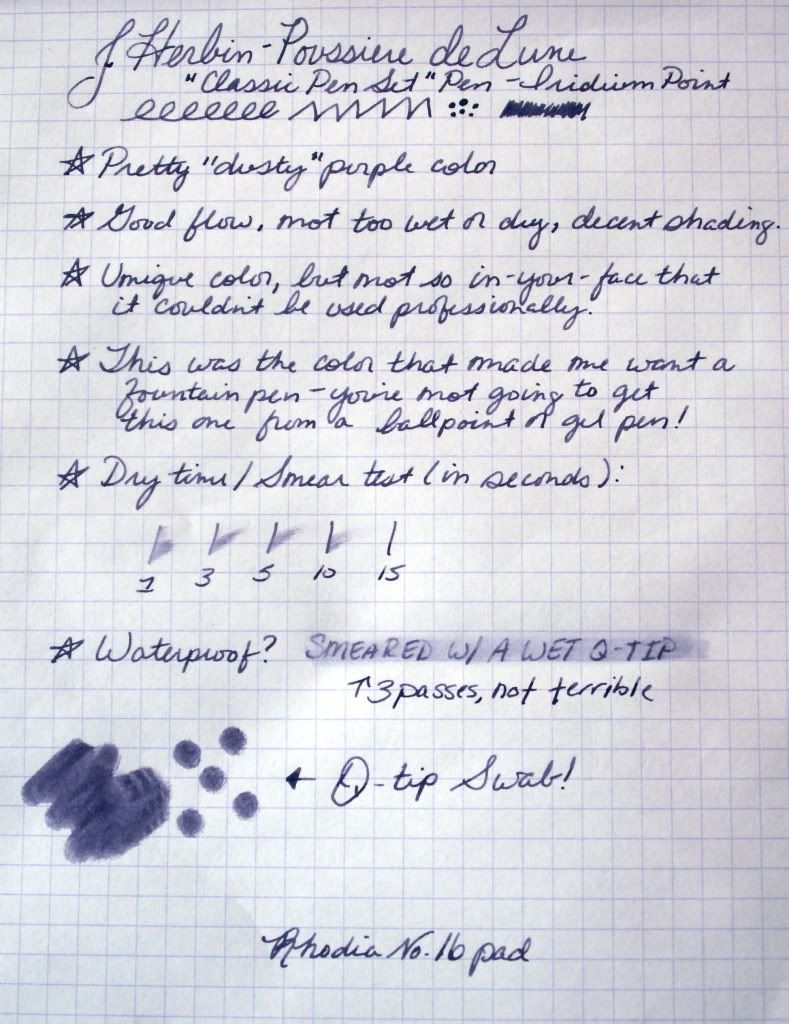 J Herbin - Poussiere de Lune
"Classic Pen Set" Pen - Iridium Point
☆ Pretty "dusty" purple color
☆ Good flow, not too wet or dry, decent shading.
☆ Unique color, but not so in-your-face that
it couldn't be used professionally.
☆ This was the color that made me want a
fountain pen - you're not going to get
this one from a ballpoint or gel pen!
☆ Dry time / Smear test (in seconds):
1 3 5 10 15
☆ Waterproof? SMEARED W/ A WET Q-TIP
↑ 3 passes, not terrible
← Q-tip Swab!
Rhodia No. 16 pad